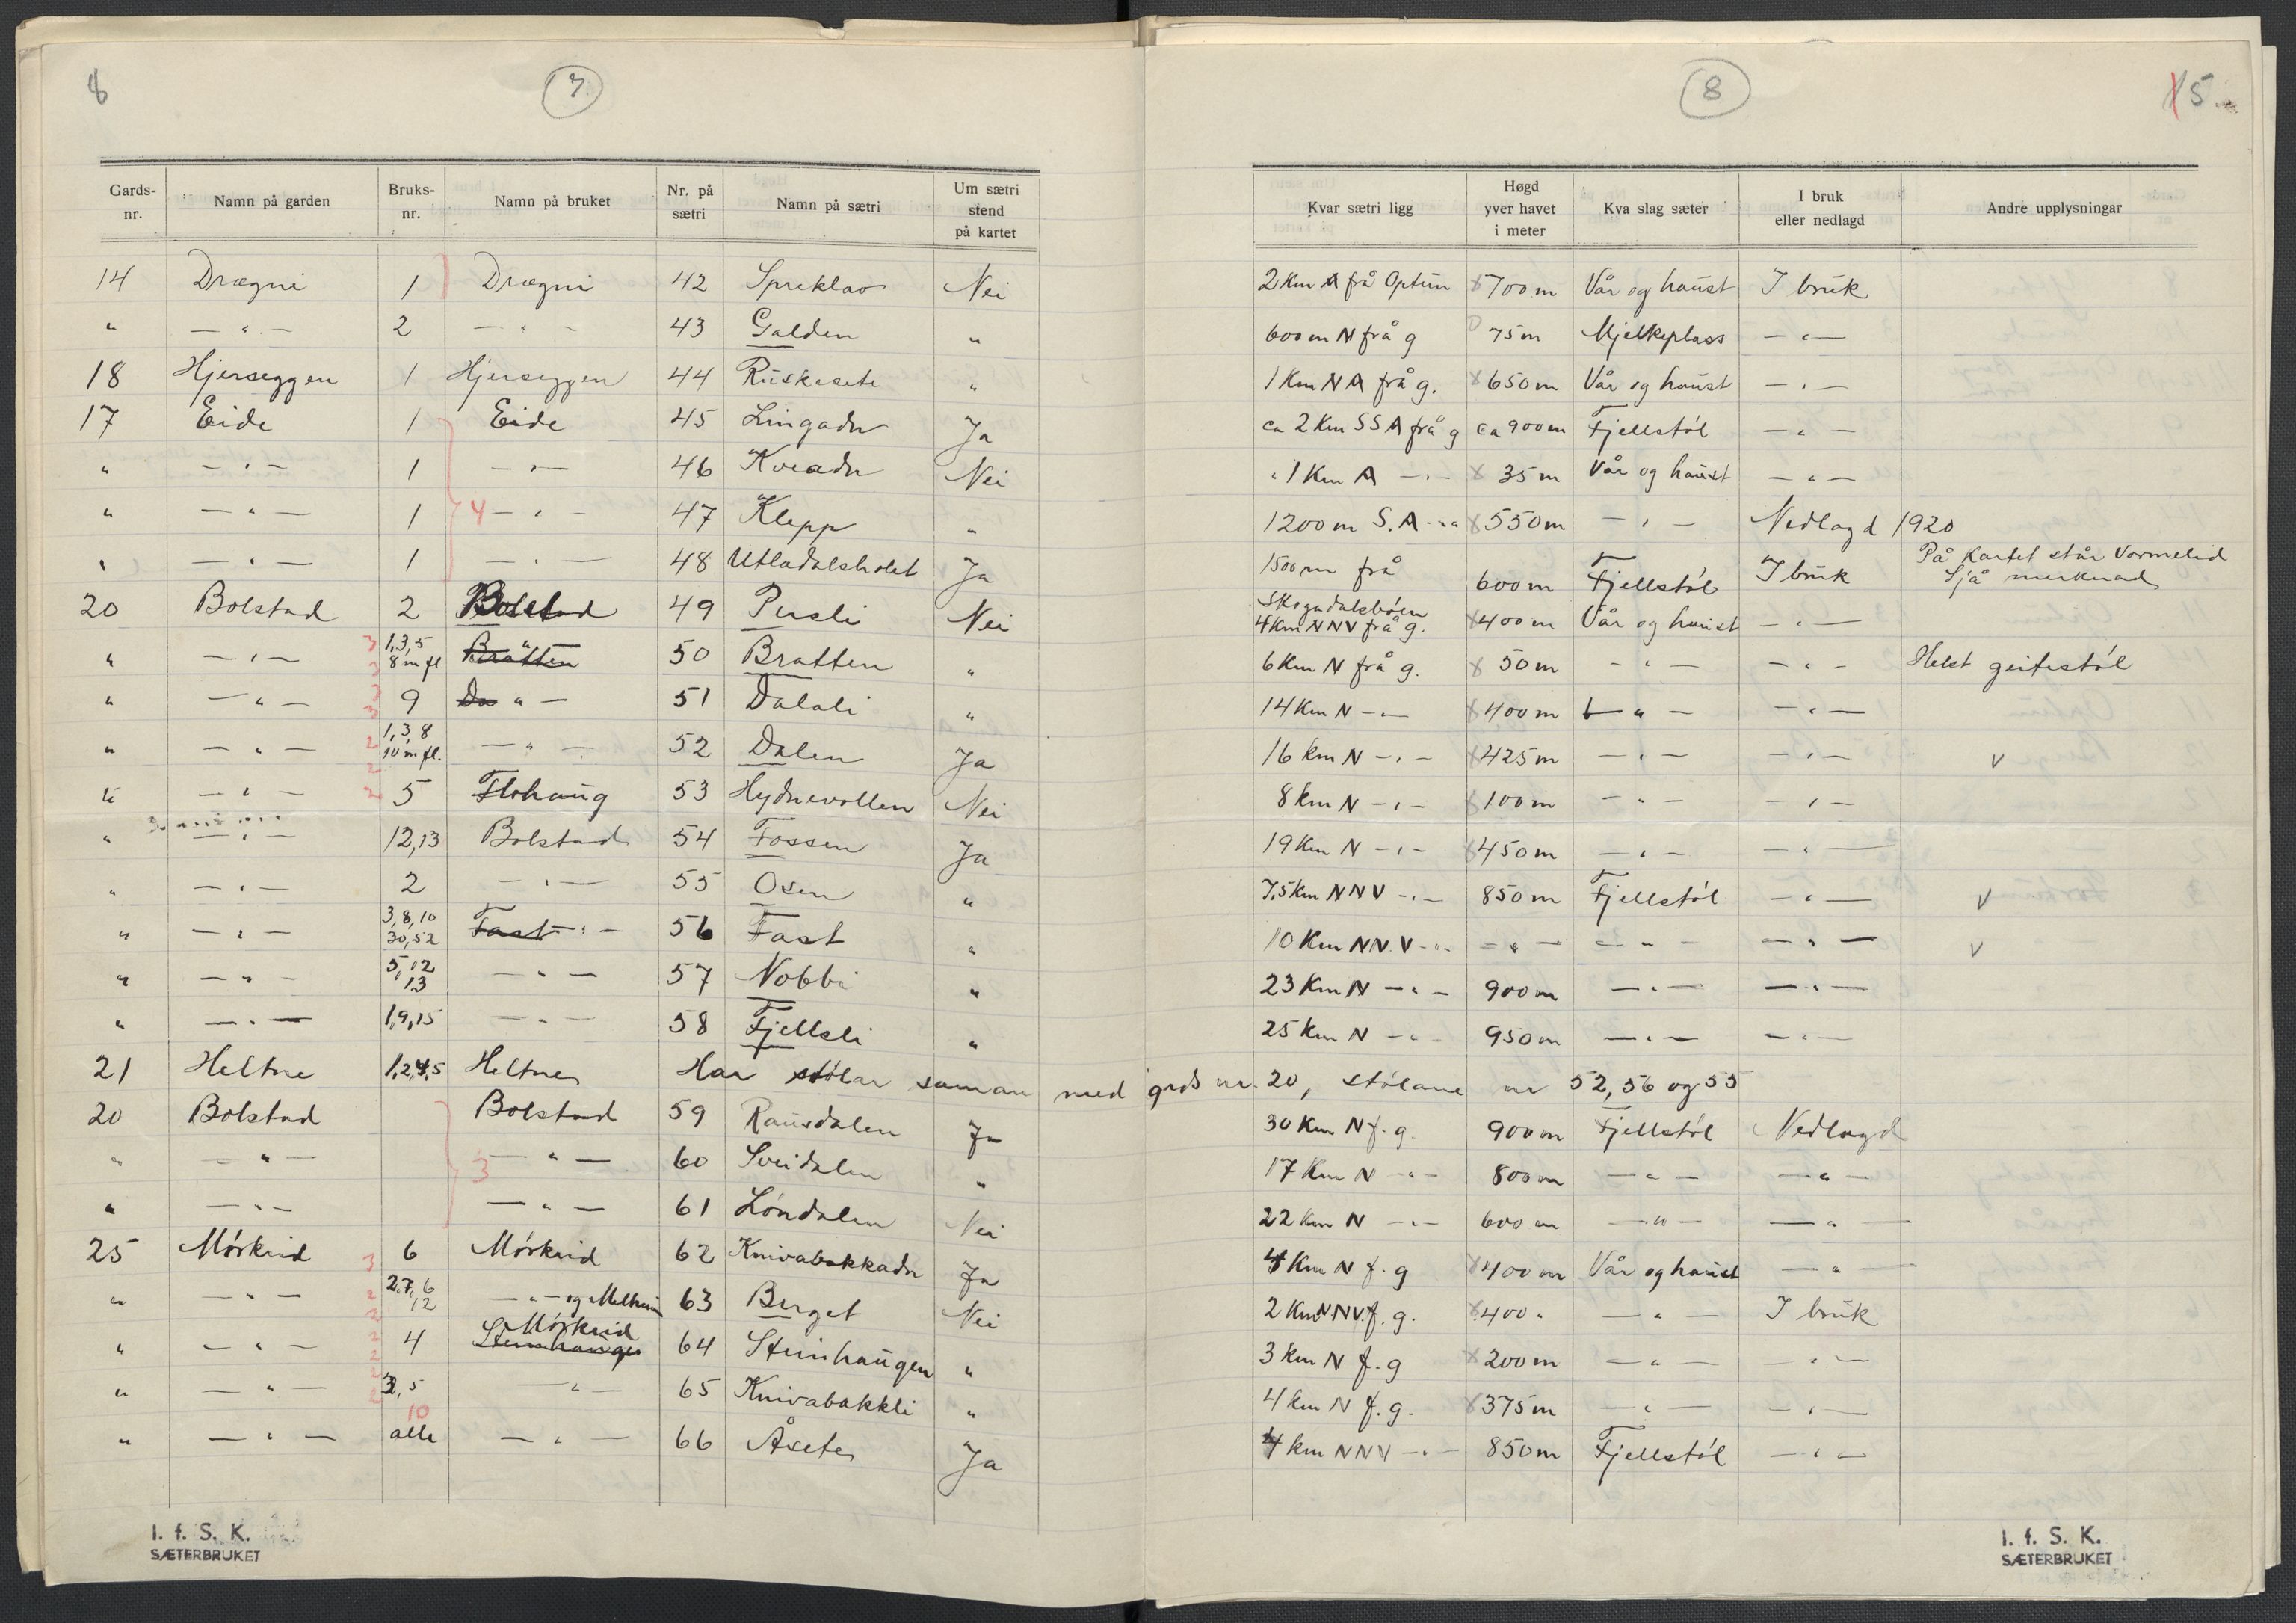 8 7 8 15
Gards-nr. Namn på garden Bruks-nr. Namn på bruket Nr. på sætri Namn på sætri Um sætri stend på kartet Kvar sætri ligg Høgd yver havet i meter Kva slag sæter I bruk eller nedlagd Andre upplysningar
14 Drægni 1 Drægni 42 Spreklao Nei 2 Km A frå Optun x 700 m Vår og haust I bruk
" — " — 2 — " — 43 Galden " 600 m N frå g 75 m Mjelkeplass — " —
18 Hjerseggen 1 Hjerseggen 44 Ruskesete " 1 Km N A frå g. x 650 m Vår og haust — " —
17 Eide 1 Eide 45 Lingadn Ja ca 2 Km SSA frå g ca 900 m Fjellstøl — " —
" — " — 1 — " — 46 Kveadn Nei " 1 Km A — " — x 35 m Vår og haust — " —
" — " — 1 4 — " — 47 Klepp " 1200 m S.A — " x 550 m — " — Nedlagd 1920
" — " — 1 — " — 48 Utladalsholet Ja 1500 m frå Skogadalsbøen 600 m Fjellstøl I bruk På kartet står Vormelid Sjå merknad
20 Bolstad 2 Bolstad 49 Persli Nei 4 Km NNV frå g. x 400 m Vår og haust — " —
" — " — 3 3 1,3,5 8 m fl Bratten " 50 Bratten " 6 Km N frå g. x 50 m — " — — " — Helst geitestøl
" — " — 3 3 9 Da " — 51 Dalali " 14 Km N — " — x 400 m — " — — " —
" — " — 2 1,3,8 10 m fl. — " — 52 Dalen Ja 16 km N — " — x 425 m — " — — " — v
" — " — 2 2 5 Flohaug 53 Hydnevollen Nei 8 km N — " — x 100 m — " — — " —
" — " — 12,13 Bolstad 54 Fossen Ja 19 Km N — " — x 450 m — " — — " —
" — " — 2 — " — 55 Osen " 7,5 Km NNV — " — 850 m Fjellstøl — " — v
" — " — 3,8,10 30,52 Fast — " — 56 Fast " 10 Km NNV — " — — " — — " — — " — v
" — " — 5,12 13 — " — 57 Nobbi " 23 Km N — " — 900 m — " — — " —
" — " — 1,9,15 — " — 58 Fjellsli " 25 Km N — " — 950 m — " — — " —
21 Heltne 1,2,4,5 Heltne Har stølar saman med grds nr. 20, stølane nr 52, 56 og 55
20 Bolstad Bolstad 59 Rausdalen Ja 30 Km N f. g. 900 m Fjellstøl Nedlagd
" — " — 3 — " — 60 Sveidalen " 17 Km N — " — 800 m — " — — " —
" — " — — " — 61 Løndalen Nei 22 Km N — " — 600 m — " — — " —
25 Mørkrid 3 6 Mørkrid 62 Knivabakkadn Ja 4 Km N f. g x 400 m Vår og haust — " —
" — " — 2 2 2,7,6 12 — " — og Melheim 63 Berget Nei 2 Km NNV. f. g. x 400 " — " — I bruk
" — " — 2 2 4 Mørkrid Steinhaugen 64 Steinhaugen " 3 Km N f. g x 200 m — " — — " —
" — " — 3,5 — " — 65 Knivabakkli " 4 km N f. g. x 375 m — " — — " —
" — " — 10 alle — " — 66 Åsete Ja 4 km NNV — " — 850 m Fjellstøl — " —
I. f. S. K.
SÆTERBRUKET
I. f. S. K.
SÆTERBRUKET